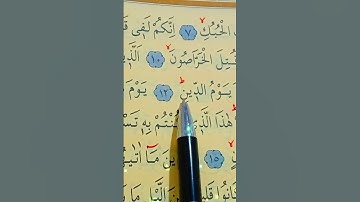 الْحُبُكِ ﴿٧﴾ اِنَّكُمْ لَف۪ي
قُتِلَ الْخَرَّاصُونَ ﴿١٠﴾ اَلَّذ۪ي
يَوْمُ الدّ۪ينِ ﴿١٢﴾ يَوْمَ
هٰذَا الَّذ۪ي كُنْتُمْ بِه۪ تَسْ
﴿١٥﴾ مَٓا اٰتٰيهُ
كَانُوا قَل۪ي الَّيْلِ مَا